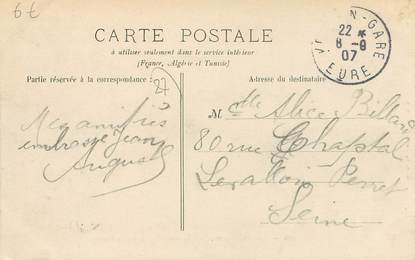 6€
CARTE POSTALE
à utiliser seulement dans le service intérieur
(France, Algérie et Tunisie)
Partie réservée à la correspondance:
27
Adresse du destinataire
N-GARE
22 *
8-9
07
EURE
Mlle Alice Billard
80 rue Chaptal
Levallois Perret
Seine
embrasse Jean